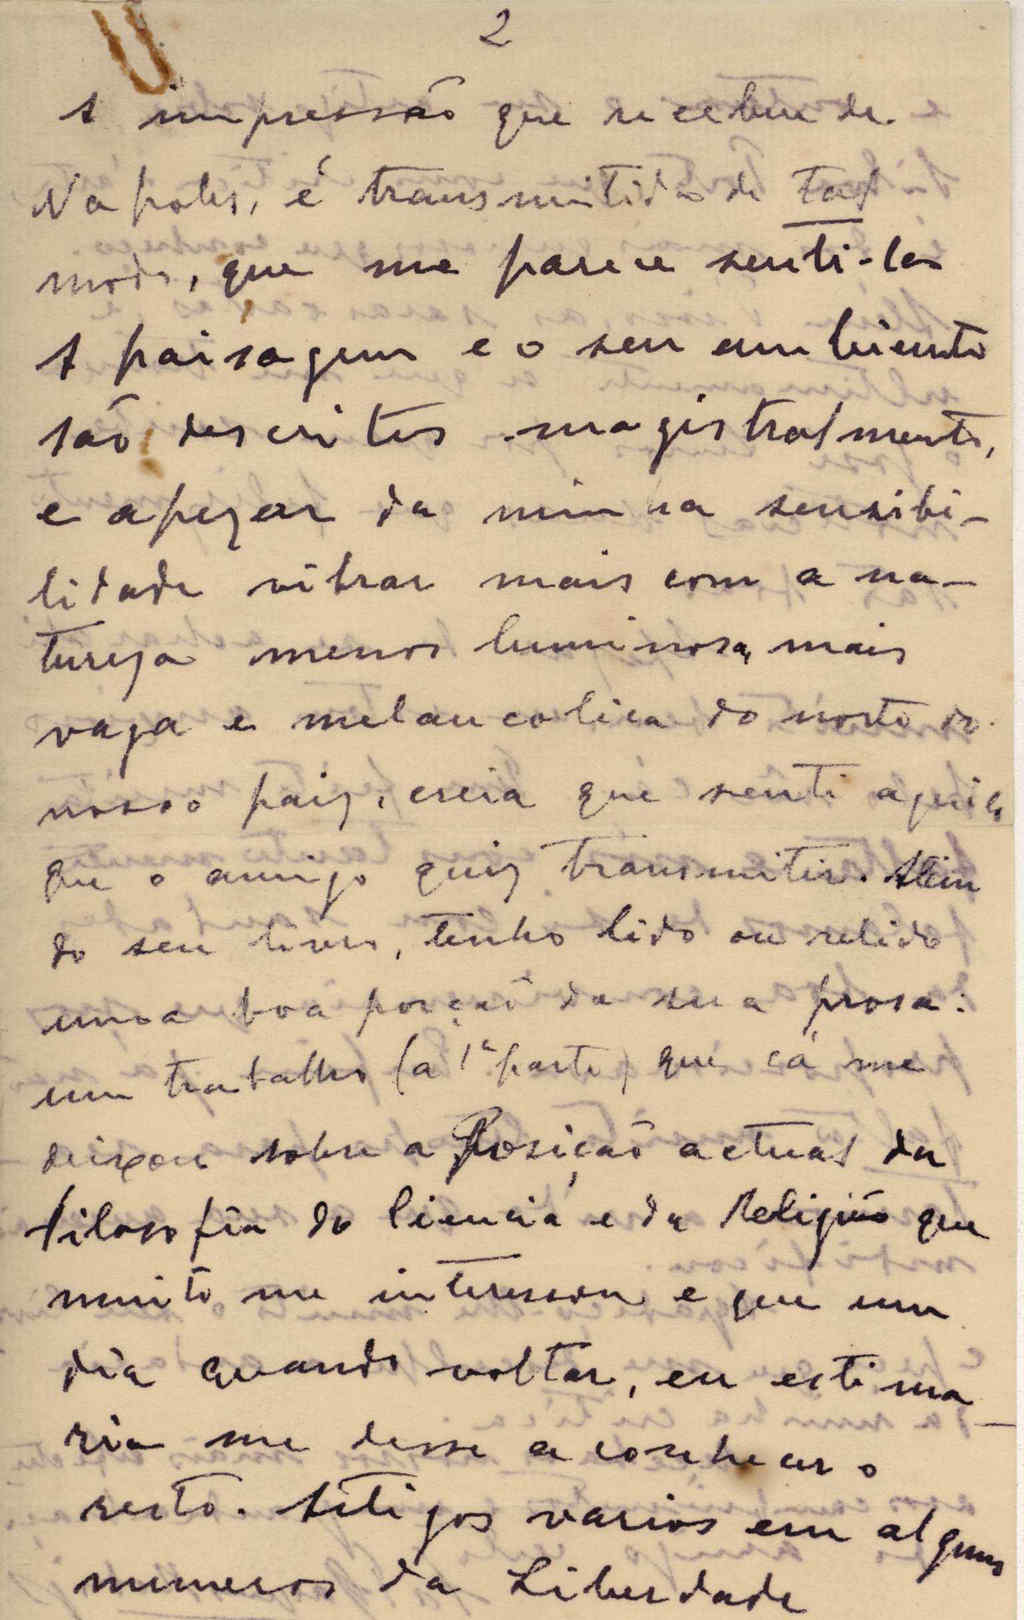 2
A impressão que recebeu de
Napoles, é transmitida de tal
modo, que me parece senti-la
A paisagem e o seu ambiente
são descritos magistralmente,
e apezar da minha sensibi-
lidade vibrar mais com a na-
tureza menos luminosa, mais
vaga e melancolica do norte do
nosso paiz, creia que senti aquilo
que o amigo quiz transmitir. Alem
do seu livro, tenho lido ou relido
uma boa porção da sua prosa:
um trabalho (a 1ª parte) que cá me
deixou sobre a Posição actual da
filosofia da Ciencia e da Religião que
muito me interessou e que um
dia quando voltar, eu estima-
ria me desse a conhecer o
resto. Artigos varios em alguns
numeros da Liberdade